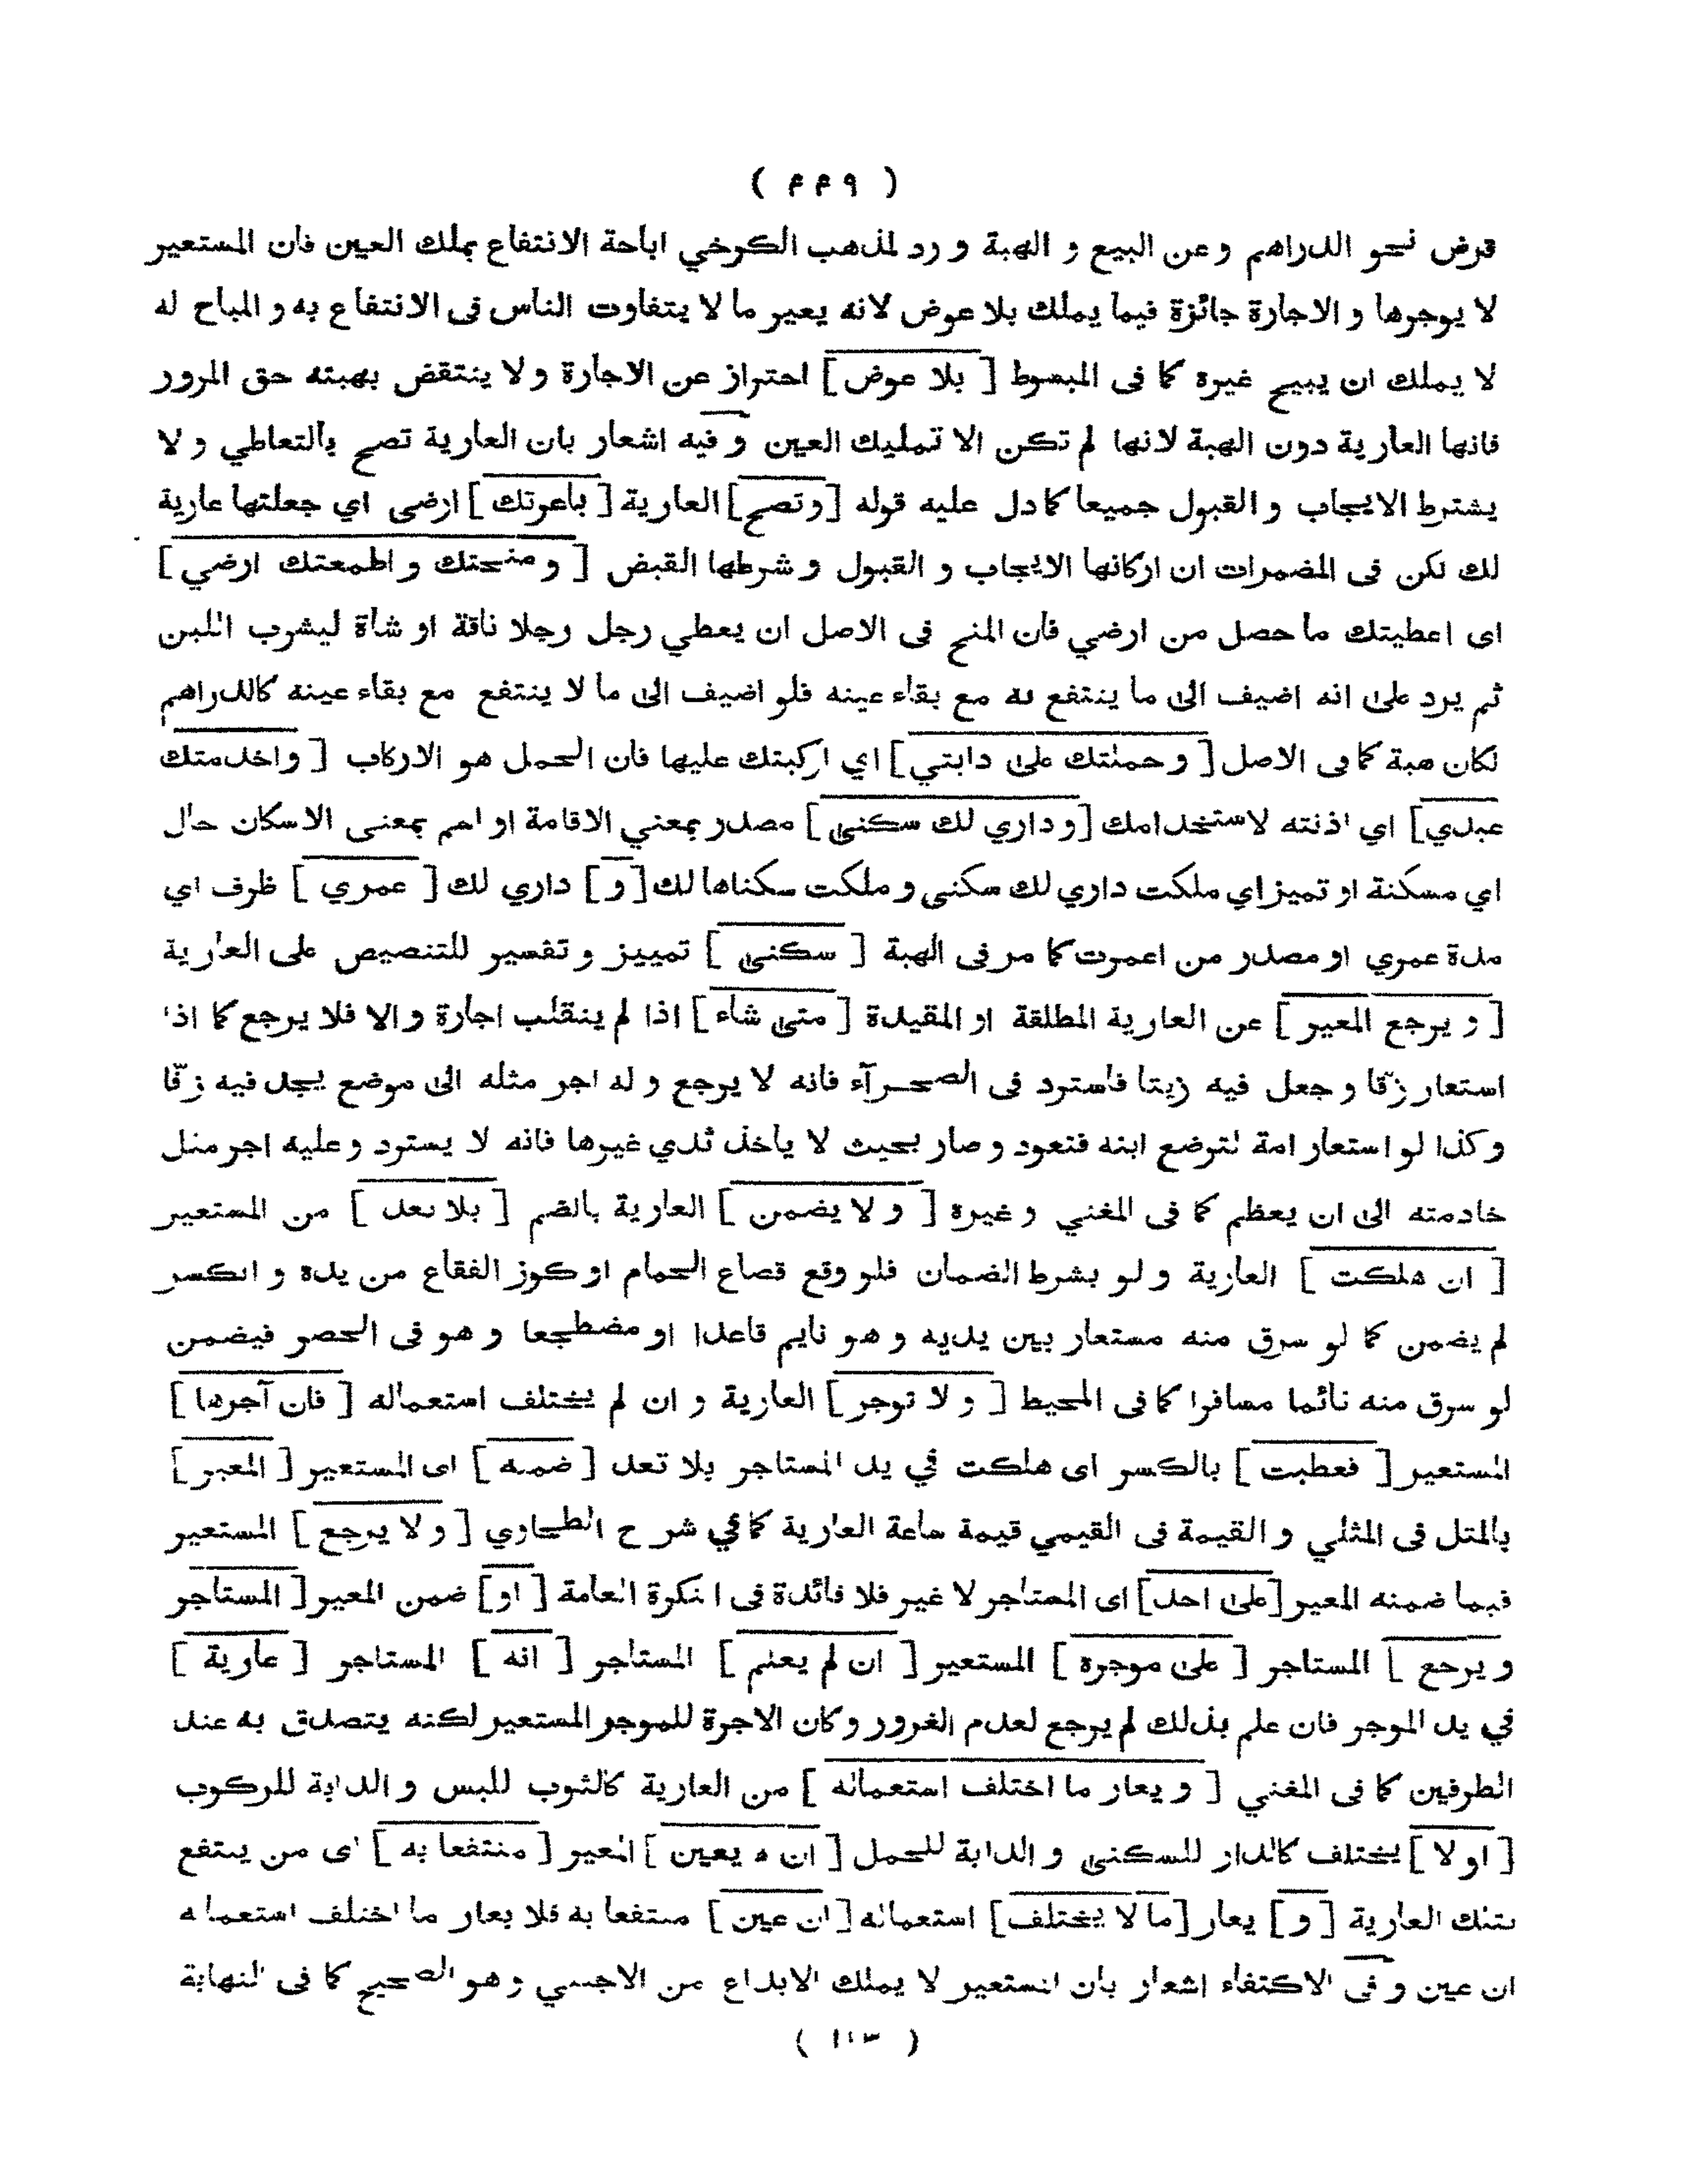 ( ۴۴۹ )
قرض نحو الدراهم و عن البيع و الهبة و رد لمذهب الكرخي اباحة الانتفاع بملك العين فان المستعير
لا يوجرها و الاجارة جائزة فيما يملك بلا عوض لانه يعير ما لا يتفاوت الناس فى الانتفاع به و المباح له
لا يملك ان يبيح غيره كما فى المبسوط [ بلا عوض ] احتراز عن الاجارة و لا ينتقض بهبته حق المرور
فانها العارية دون الهبة لانها لم تكن الا تمليك العين و فيه اشعار بان العارية تصح بالتعاطي و لا
يشترط الايجاب و القبول جميعا كما دل عليه قوله [ و تصح ] العارية [ باعرتك ] ارضى اي جعلتها عارية
لك لكن فى المضمرات ان اركانها الايجاب و القبول و شرطها القبض [ و منحتك و اطمعتك ارضي ]
اى اعطيتك ما حصل من ارضي فان المنح فى الاصل ان يعطي رجل رجلا ناقة او شاة ليشرب اللبن
ثم يرد على انه اضيف الى ما ينتفع به مع بقاء عينه فلو اضيف الى ما لا ينتفع مع بقاء عينه كالدراهم
لكان هبة كما فى الاصل [ و حملتك على دابتي ] اي اركبتك عليها فان الحمل هو الاركاب [ و اخدمتك
عبدي ] اي اذنته لاستخدامك [ و داري لك سكنى ] مصدر بمعني الاقامة او اسم بمعنى الاسكان حال
اي مسكنة او تميز اي ملكت داري لك سكنى و ملكت سكناها لك [ و ] داري لك [ عمري ] ظرف اي
مدة عمري او مصدر من اعمرت كما مر فى الهبة [ سكنى ] تمييز و تفسير للتنصيص على العارية
[ و يرجع المعير ] عن العارية المطلقة او المقيدة [ متى شاء ] اذا لم ينقلب اجارة و الا فلا يرجع كما اذا
استعار زقّا و جعل فيه زيتا فاسترد فى الصحرآء فانه لا يرجع و له اجر مثله الى موضع يجد فيه زقّا
و كذا لو استعار امة لترضع ابنه فتعود و صار بحيث لا ياخذ ثدي غيرها فانه لا يسترد و عليه اجر مثل
خادمته الى ان يعظم كما فى المغني و غيره [ و لا يضمن ] العارية بالضم [ بلا تعد ] من المستعير
[ ان هلكت ] العارية و لو بشرط الضمان فلو وقع قصاع الحمام او كوز الفقاع من يده و انكسر
لم يضمن كما لو سرق منه مستعار بين يديه و هو نايم قاعدا او مضطجعا و هو فى الحصر فيضمن
لو سرق منه نائما مسافرا كما فى المحيط [ و لا توجر ] العارية و ان لم يختلف استعماله [ فان آجرها ]
المستعير [ فعطبت ] بالكسر اى هلكت في يد المستاجر بلا تعد [ ضمنه ] اى المستعير [ المعير ]
بالمثل فى المثلي و القيمة فى القيمي قيمة ساعة العارية كما في شرح الطحاوي [ و لا يرجع ] المستعير
فيما ضمنه المعير [ على احد ] اى المستاجر لا غير فلا فائدة فى النكرة العامة [ او ] ضمن المعير [ المستاجر
و يرجع ] المستاجر [ على موجرة ] المستعير [ ان لم يعلم ] المستاجر [ انه ] المستاجر [ عارية ]
في يد الموجر فان علم بذلك لم يرجع لعدم الغرور و كان الاجرة للموجر المستعير لكنه يتصدق به عند
الطرفين كما فى المغني [ و يعار ما اختلف استعماله ] من العارية كالثوب للبس و الدابة للركوب
[ او لا ] يختلف كالدار للسكنى و الدابة للحمل [ ان ه يعين ] المعير [ منتفعا به ] اى من ينتفع
بتلك العارية [ و ] يعار [ ما لا يختلف ] استعماله [ ان عين ] منتفعا به فلا يعار ما اختلف استعماله
ان عين و فى الاكتفاء اشعار بان المستعير لا يملك الايداع من الاجنبي و هو الصحيح كما فى النهاية